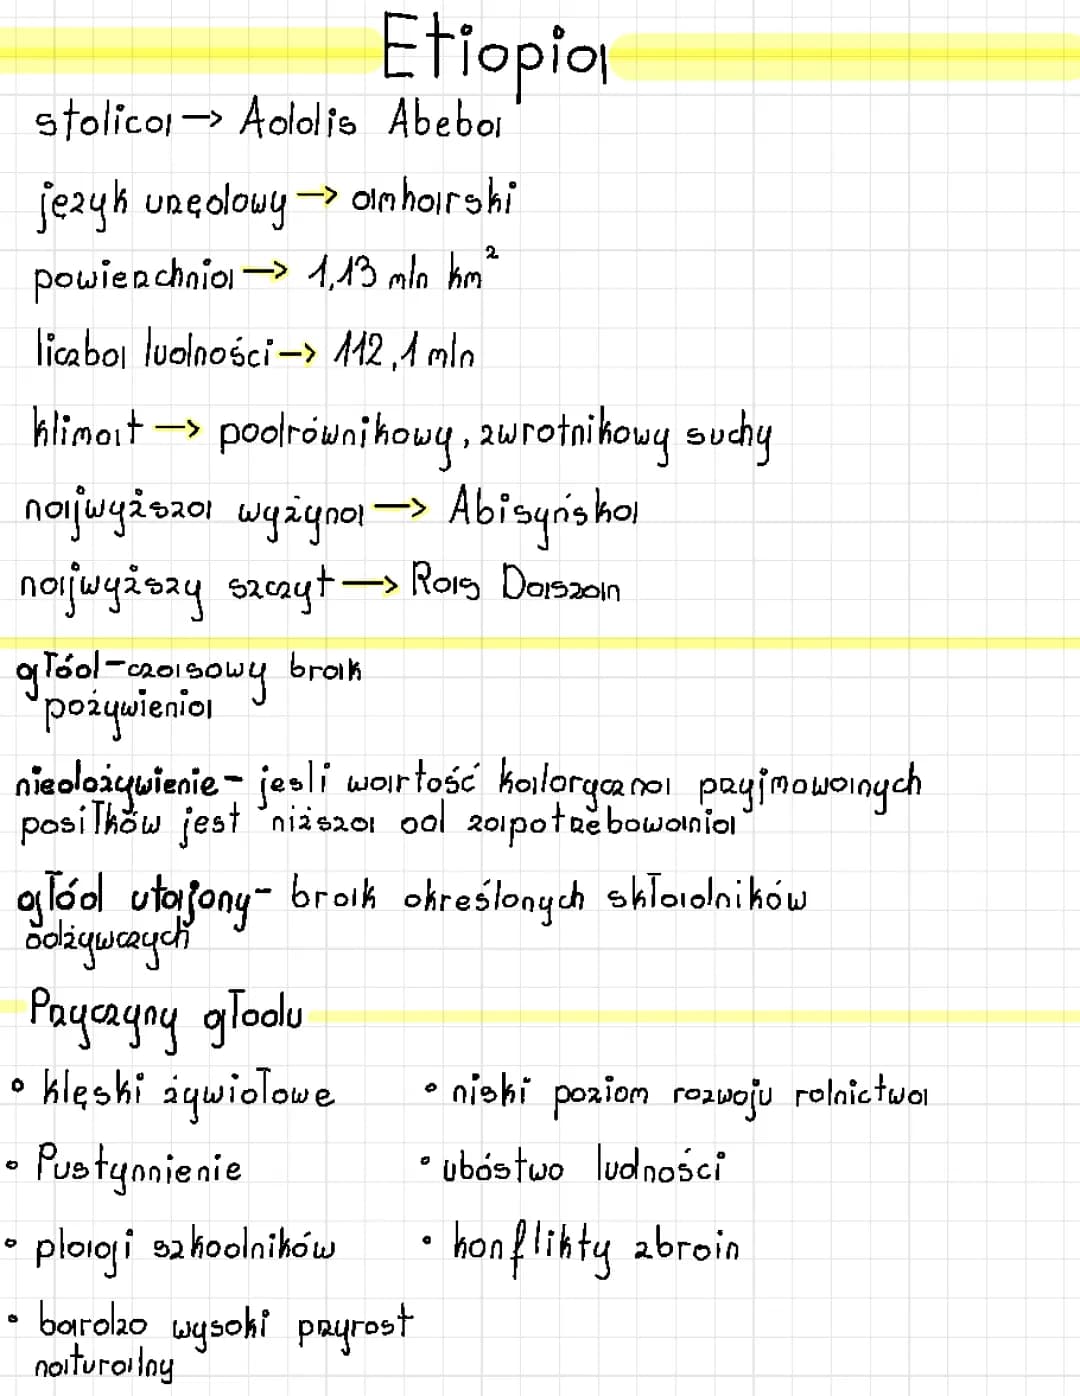 Etiopia
stolica → Addis Abeba
język urzędowy → amharski
powierzchnia → 1,13 mln km²
liczba ludności → 112,1 mln
klimat → podrównikowy, zwrotnikowy suchy
najwyższa wyżyna → Abisyńska
najwyższy szczyt → Ras Daszan
głód - czasowy brak
pożywienia
niedożywienie - jesli wartość kaloryczna przyjmowanych
posiłków jest niższa od zapotrzebowania
głód utajony - brak określonych składników
odżywczych
Przyczyny głodu
• klęski żywiołowe • niski poziom rozwoju rolnictwa
• Pustynnienie • ubóstwo ludności
• plagi szkodników • konflikty zbroin
• bardzo wysoki przyrost
naturalny